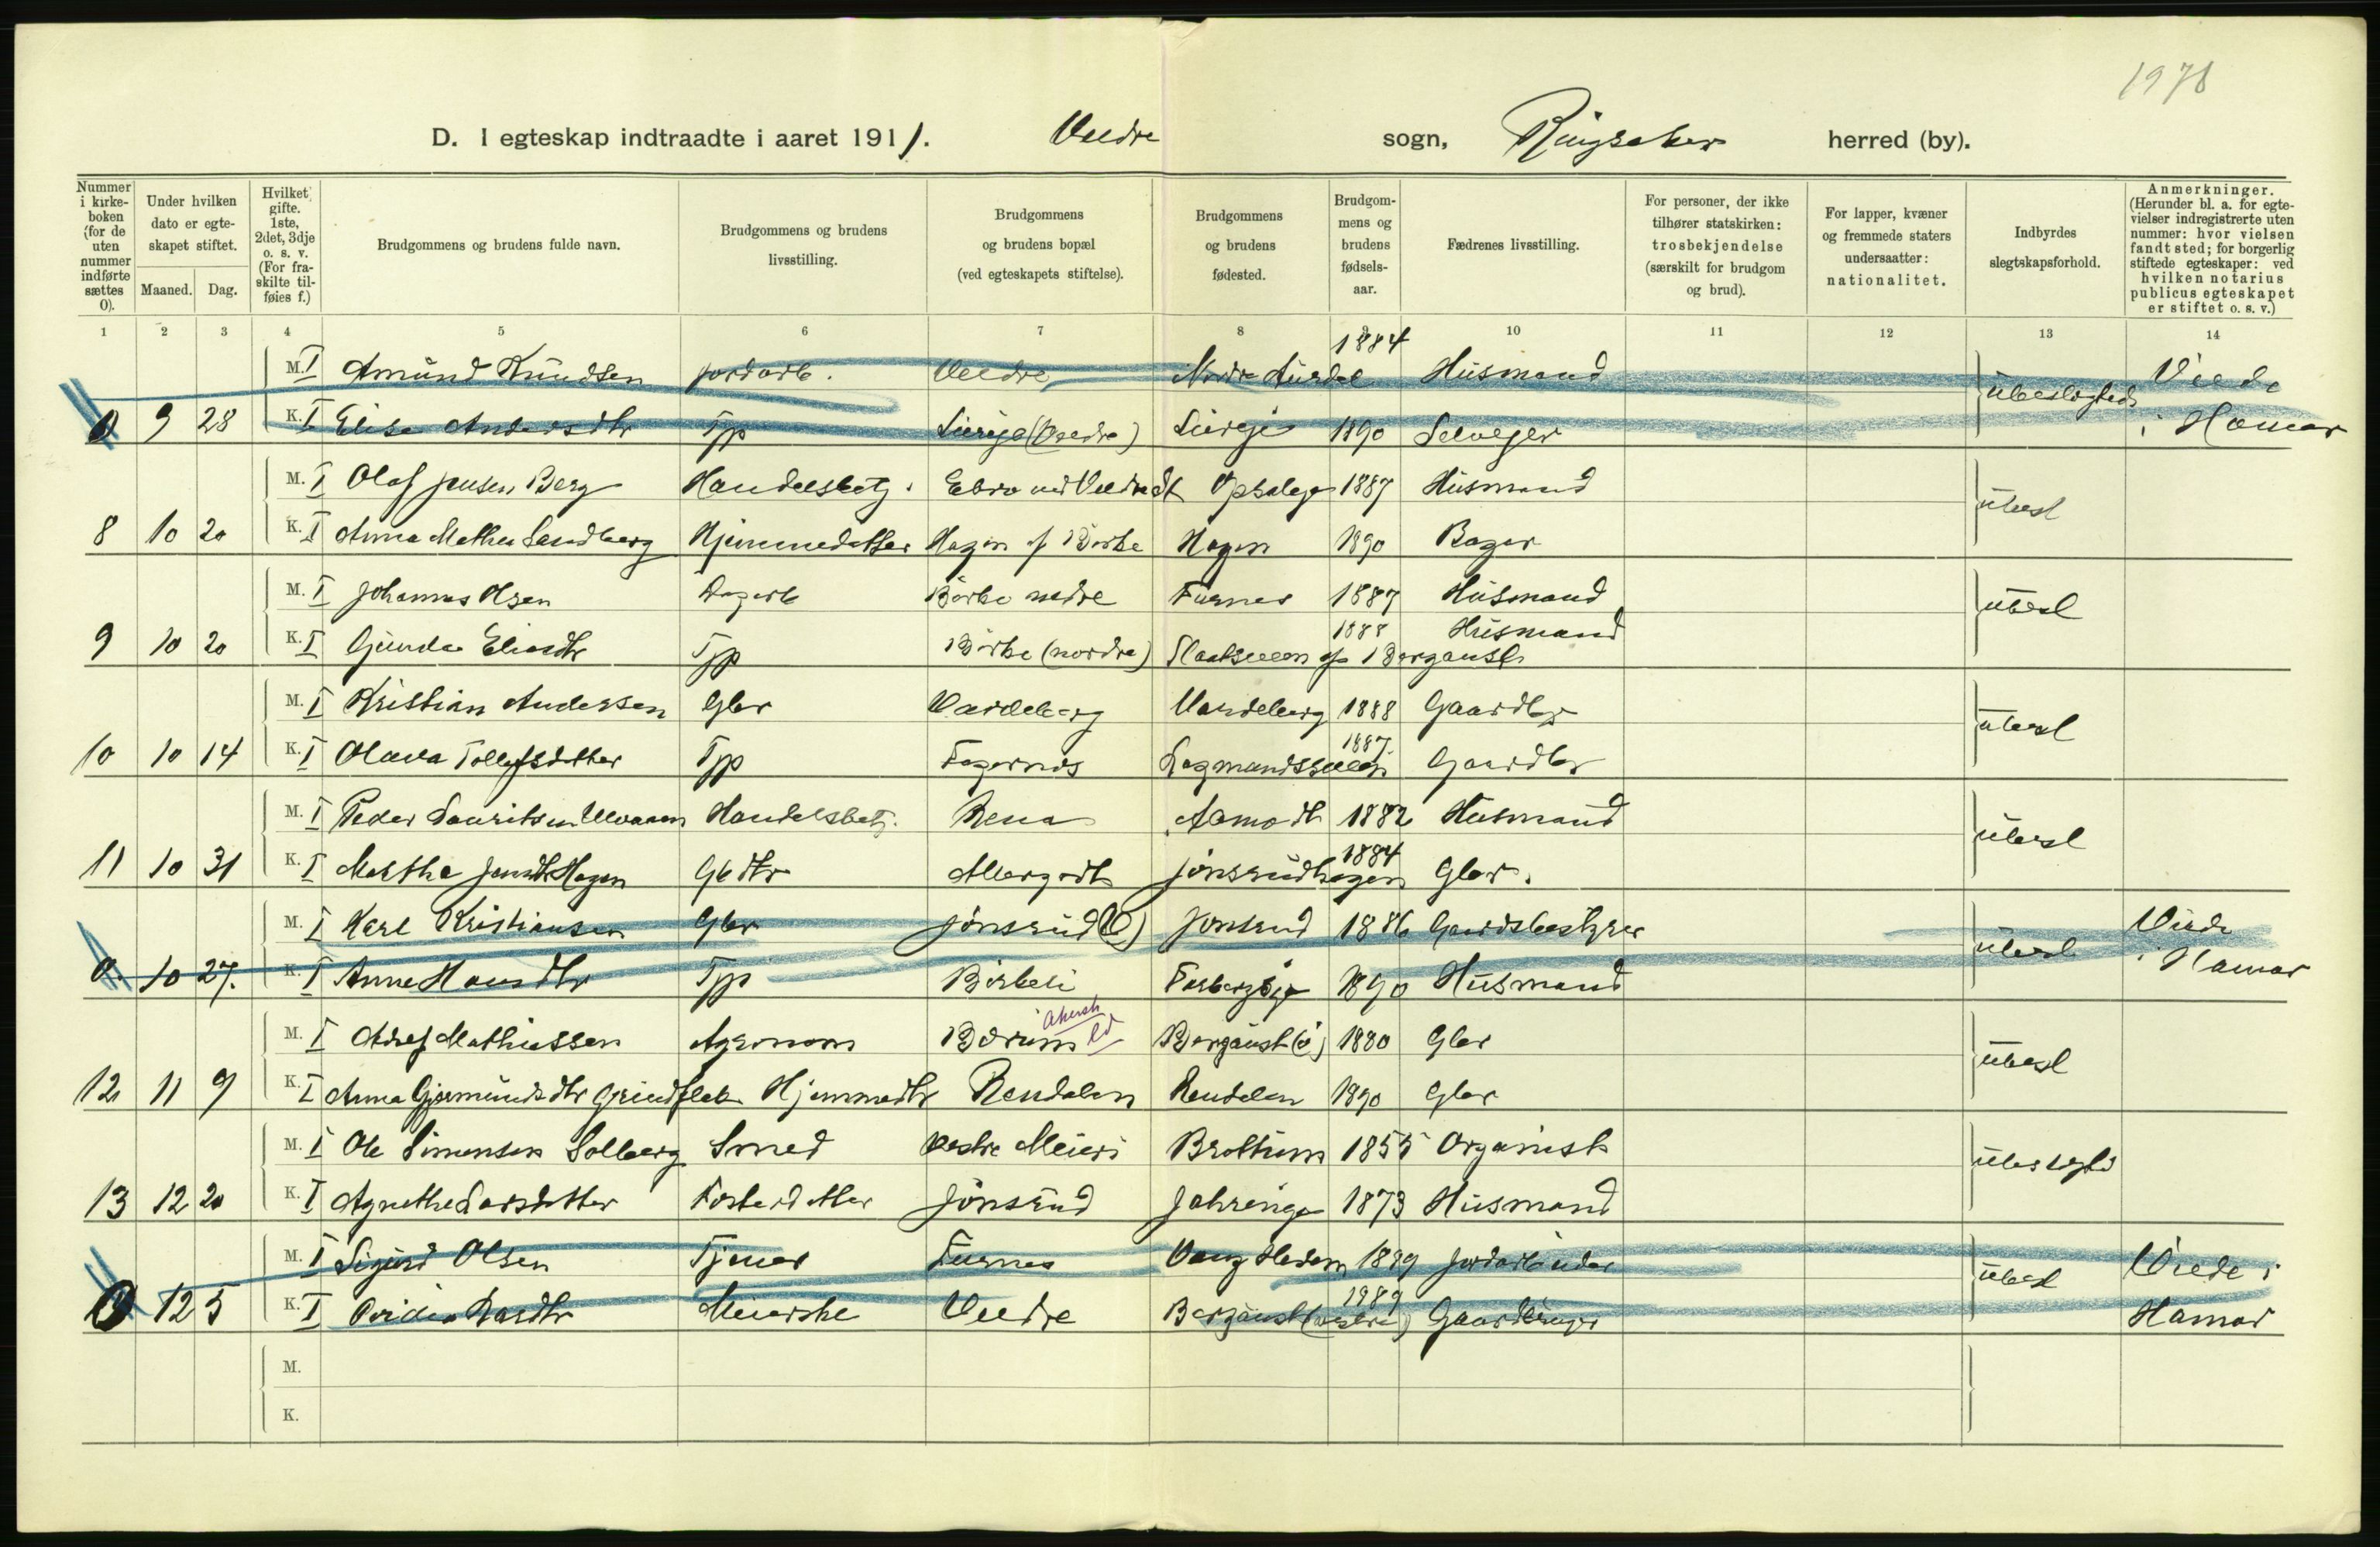 1978
D. I egteskap indtraadte i aaret 1911. Veedre sogn, Ringsaker herred (by).
Nummer i kirkeboken (for de uten nummer indførte sættes 0).
Under hvilken dato er egteskapet stiftet.
Maaned. Dag.
Hvilket gifte. 1ste, 2det, 3dje o. s. v. (For fraskilte tilføies f.)
Brudgommens og brudens fulde navn.
Brudgommens og brudens livsstilling.
Brudgommens og brudens bopæl (ved egteskapets stiftelse).
Brudgommens og brudens fødested.
Brudgommens og brudens fødselsaar.
Fædrenes livsstilling.
For personer, der ikke tilhører statskirken: trosbekjendelse (særskilt for brudgom og brud).
For lapper, kvæner og fremmede staters undersaatter: nationalitet.
Indbyrdes slegtskapsforhold.
Anmerkninger. (Herunder bl. a. for egtevielser indregistrerte uten nummer: hvor vielsen fandt sted; for borgerlig stiftede egteskaper: ved hvilken notarius publicus egteskapet er stiftet o. s. v.)
1 2 3 4 5 6 7 8 9 10 11 12 13 14
M. I Amund Knudsen jordarb. Veedre Nordre Aurdal 1884 Husmand ubeslegtede Viede
0 9 28 K. I Elise Andersdtr Tjp Liereje (Veedre) Liereje 1890 Selvejer i Hamar
M. I Olaf Jensen Berg Handelsbetj. Veedre st 1887 Husmand ubesl
8 10 20 K. I Anna Mathea Sandberg Hjemmedatter Hagen Hagen 1890 Bager
M. I Johannes Olsen Dagarb Børke nedre Furnes 1887 Husmand ubesl
9 10 20 K. I Gunda Eliasdtr Tjp Børke (nordre) Berganst 1888 Husmand
M. I Kristian Andersen Gbr Vardeberg Vardeberg 1888 Gaardbr ubesl
10 10 14 K. I Olava Tollefsdatter Tjp Fagernes Lagmandssveen 1887 Gaardbr
M. I Peder Lauritsen Handelsbetj. Rena Aamodt 1882 Husmand ubesl
11 10 31 K. I Martha Jensdtr Hagen Gbdtr Jønsrudhagen 1884 Gbr.
M. I Karl Kristiansen Gbr Jønsrud (V) Jønsrud 1886 Gaardsbestyrer ubesl Viede
0. 10 27. K. I Anne Hansdtr Tjp Børkeli 1890 Husmand i Hamar
M. I Adolf Mathiassen Agronom Bærum Akersh Berganst (ø) 1880 Gbr ubesl
12 11 9 K. I Anna Gjermundsdtr Grindflek Hjemmedtr Rendalen Rendalen 1890 Gbr
M. I Ole Simensen Solberg Smed vestre Meieri Brøttum 1855 Organist ubeslegtd
13 12 20 K. I Agnethe Larsdatter Fosterdatter Jønsrud 1873 Husmand
M. I Sigurd Olsen Tjener Furnes Vang Hedem 1889 jordarbeider ubesl Viede i
0 12 5 K. I Meierske Veedre Berganst (vestre) 1989 Hamar
M.
K.